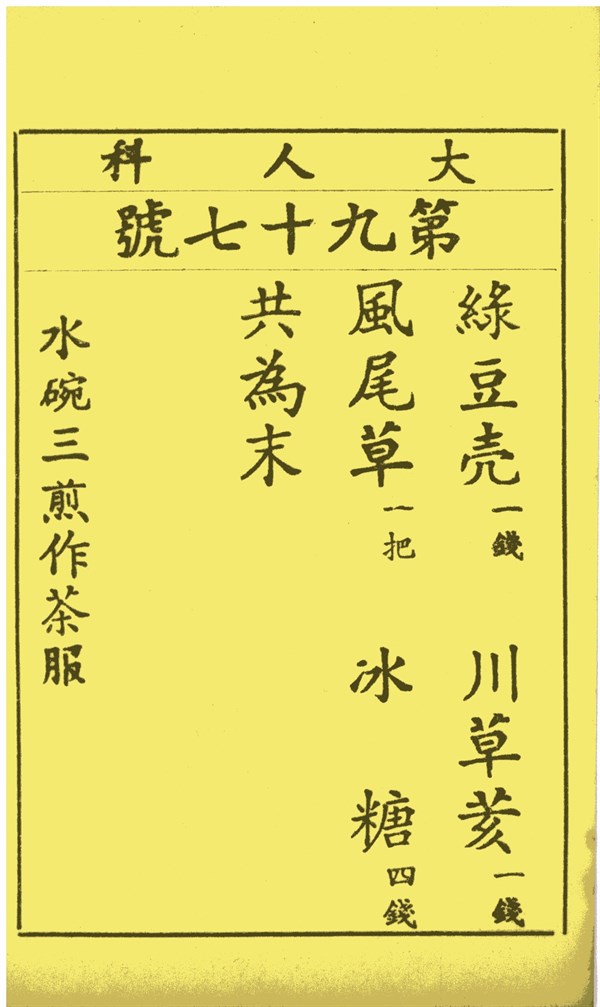 大人科
第九十七號
綠豆壳一錢 川草荄一錢
風尾草一把 冰糖四錢
共為末
水碗三煎作茶服